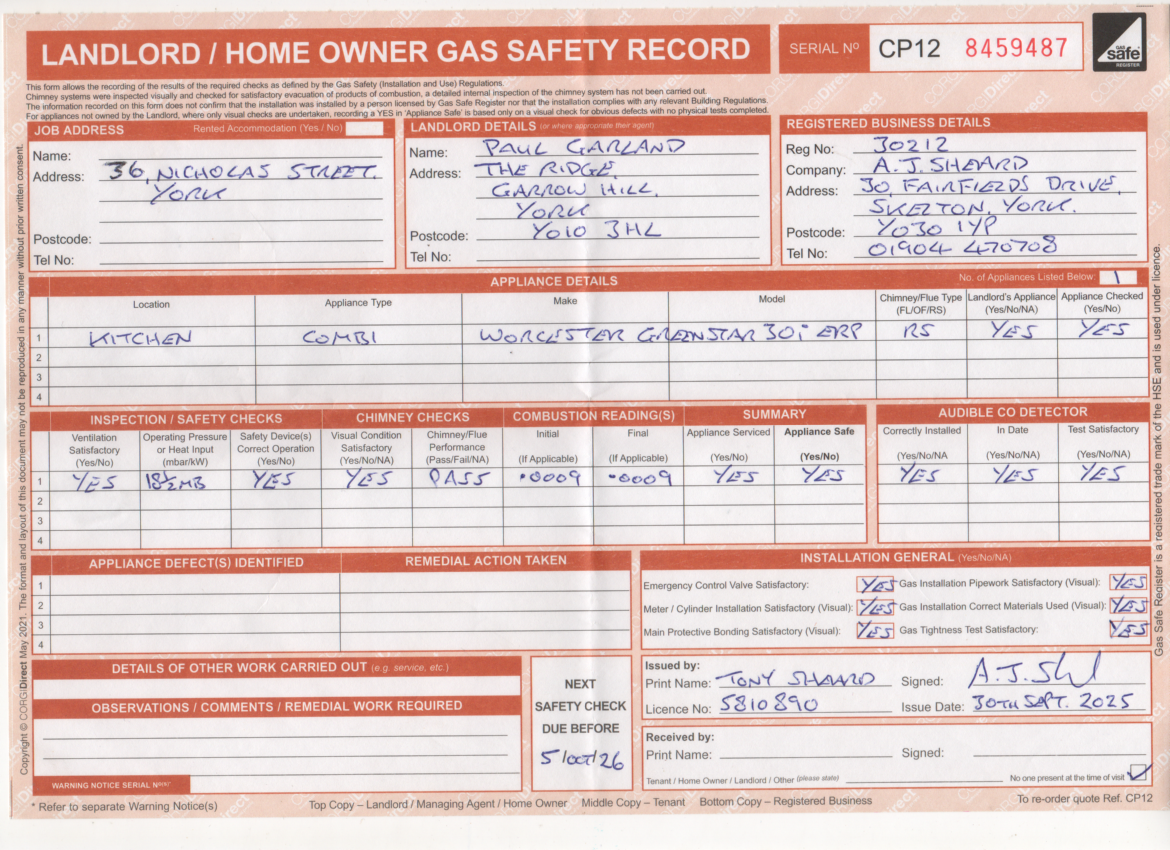 LANDLORD / HOME OWNER GAS SAFETY RECORD
SERIAL Nº CP12 8459487
GAS safe REGISTER
This form allows the recording of the results of the required checks as defined by the Gas Safety (Installation and Use) Regulations.
Chimney systems were inspected visually and checked for satisfactory evacuation of products of combustion, a detailed internal inspection of the chimney system has not been carried out.
The information recorded on this form does not confirm that the installation was installed by a person licensed by Gas Safe Register nor that the installation complies with any relevant Building Regulations.
For appliances not owned by the Landlord, where only visual checks are undertaken, recording a YES in 'Appliance Safe' is based only on a visual check for obvious defects with no physical tests completed.
JOB ADDRESS Rented Accommodation (Yes / No)
Name:
Address: 36, NICHOLAS STREET,
YORK
Postcode:
Tel No:
LANDLORD DETAILS (or where appropriate their agent)
Name: PAUL GARLAND
Address: THE RIDGE,
GARROW HILL,
YORK
Postcode: YO10 3HL
Tel No:
REGISTERED BUSINESS DETAILS
Reg No: 30212
Company: A.J. SHEARD
Address: 30, FAIRFIELDS DRIVE,
SKELTON, YORK.
Postcode: YO30 1YP
Tel No: 01904 470708
APPLIANCE DETAILS No. of Appliances Listed Below: 1
Location Appliance Type Make Model Chimney/Flue Type (FL/OF/RS) Landlord's Appliance (Yes/No/NA) Appliance Checked (Yes/No)
1 KITCHEN COMBI WORCESTER GREENSTAR 30i ERP RS YES YES
2
3
4
INSPECTION / SAFETY CHECKS CHIMNEY CHECKS COMBUSTION READING(S) SUMMARY AUDIBLE CO DETECTOR
Ventilation Satisfactory (Yes/No) Operating Pressure or Heat Input (mbar/kW) Safety Device(s) Correct Operation (Yes/No) Visual Condition Satisfactory (Yes/No/NA) Chimney/Flue Performance (Pass/Fail/NA) Initial (If Applicable) Final (If Applicable) Appliance Serviced (Yes/No) Appliance Safe (Yes/No) Correctly Installed (Yes/No/NA In Date (Yes/No/NA) Test Satisfactory (Yes/No/NA)
1 YES 18½MB YES YES PASS .0009 .0009 YES YES YES YES YES
2
3
4
APPLIANCE DEFECT(S) IDENTIFIED REMEDIAL ACTION TAKEN
1
2
3
4
INSTALLATION GENERAL (Yes/No/NA)
Emergency Control Valve Satisfactory: YES Gas Installation Pipework Satisfactory (Visual): YES
Meter / Cylinder Installation Satisfactory (Visual): YES Gas Installation Correct Materials Used (Visual): YES
Main Protective Bonding Satisfactory (Visual): YES Gas Tightness Test Satisfactory: YES
DETAILS OF OTHER WORK CARRIED OUT (e.g. service, etc.)
OBSERVATIONS / COMMENTS / REMEDIAL WORK REQUIRED
WARNING NOTICE SERIAL Nº
NEXT
SAFETY CHECK
DUE BEFORE
5/OCT/26
Issued by:
Print Name: TONY SHEARD Signed: A.J. Sh
Licence No: 5810890 Issue Date: 30TH SEPT. 2025
Received by:
Print Name: Signed:
Tenant / Home Owner / Landlord / Other (please state) No one present at the time of visit
* Refer to separate Warning Notice(s) Top Copy – Landlord / Managing Agent / Home Owner Middle Copy – Tenant Bottom Copy – Registered Business To re-order quote Ref. CP12
Copyright © CORGIDirect May 2021. The format and layout of this document may not be reproduced in any manner without prior written consent.
Gas Safe Register is a registered trade mark of the HSE and is used under licence.